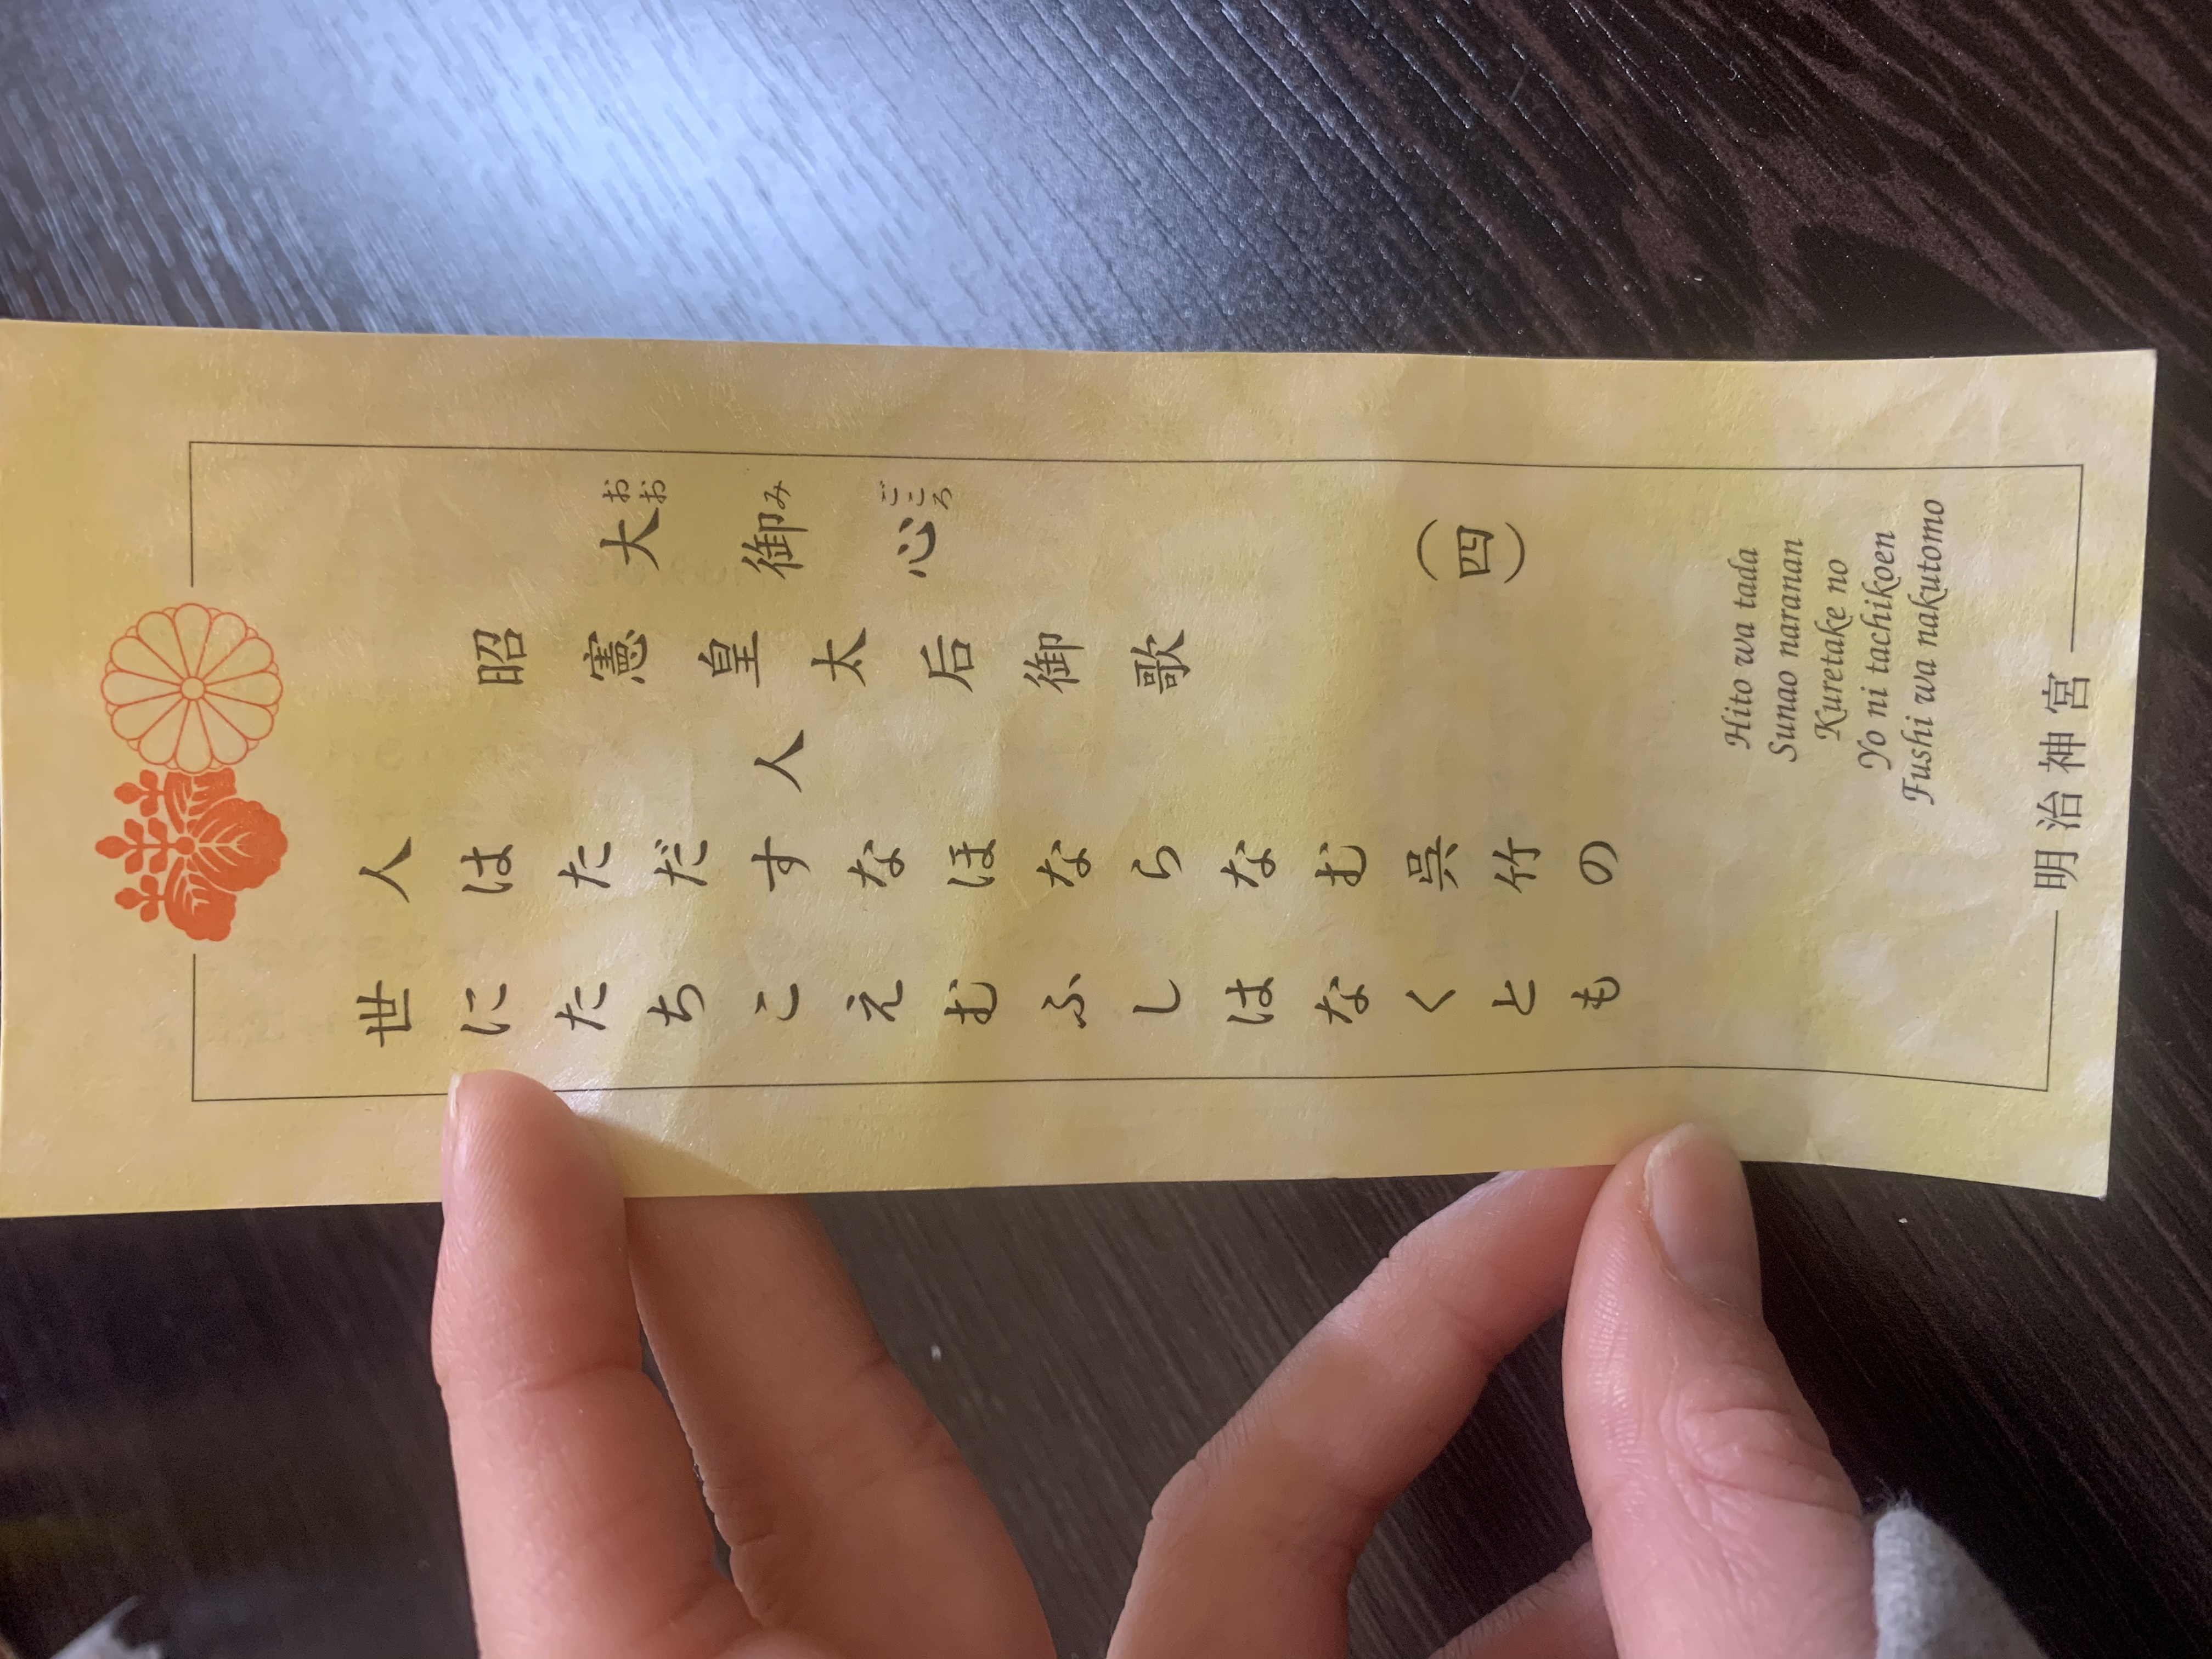 大御心
おおみごころ
昭憲皇太后御歌
(四)
人
人はただすなほならなむ呉竹の
世にたちこえむふしはなくとも
Hito wa tada
Sunao naranan
Kuretake no
Yo ni tachikoen
Fushi wa nakutomo
明治神宮